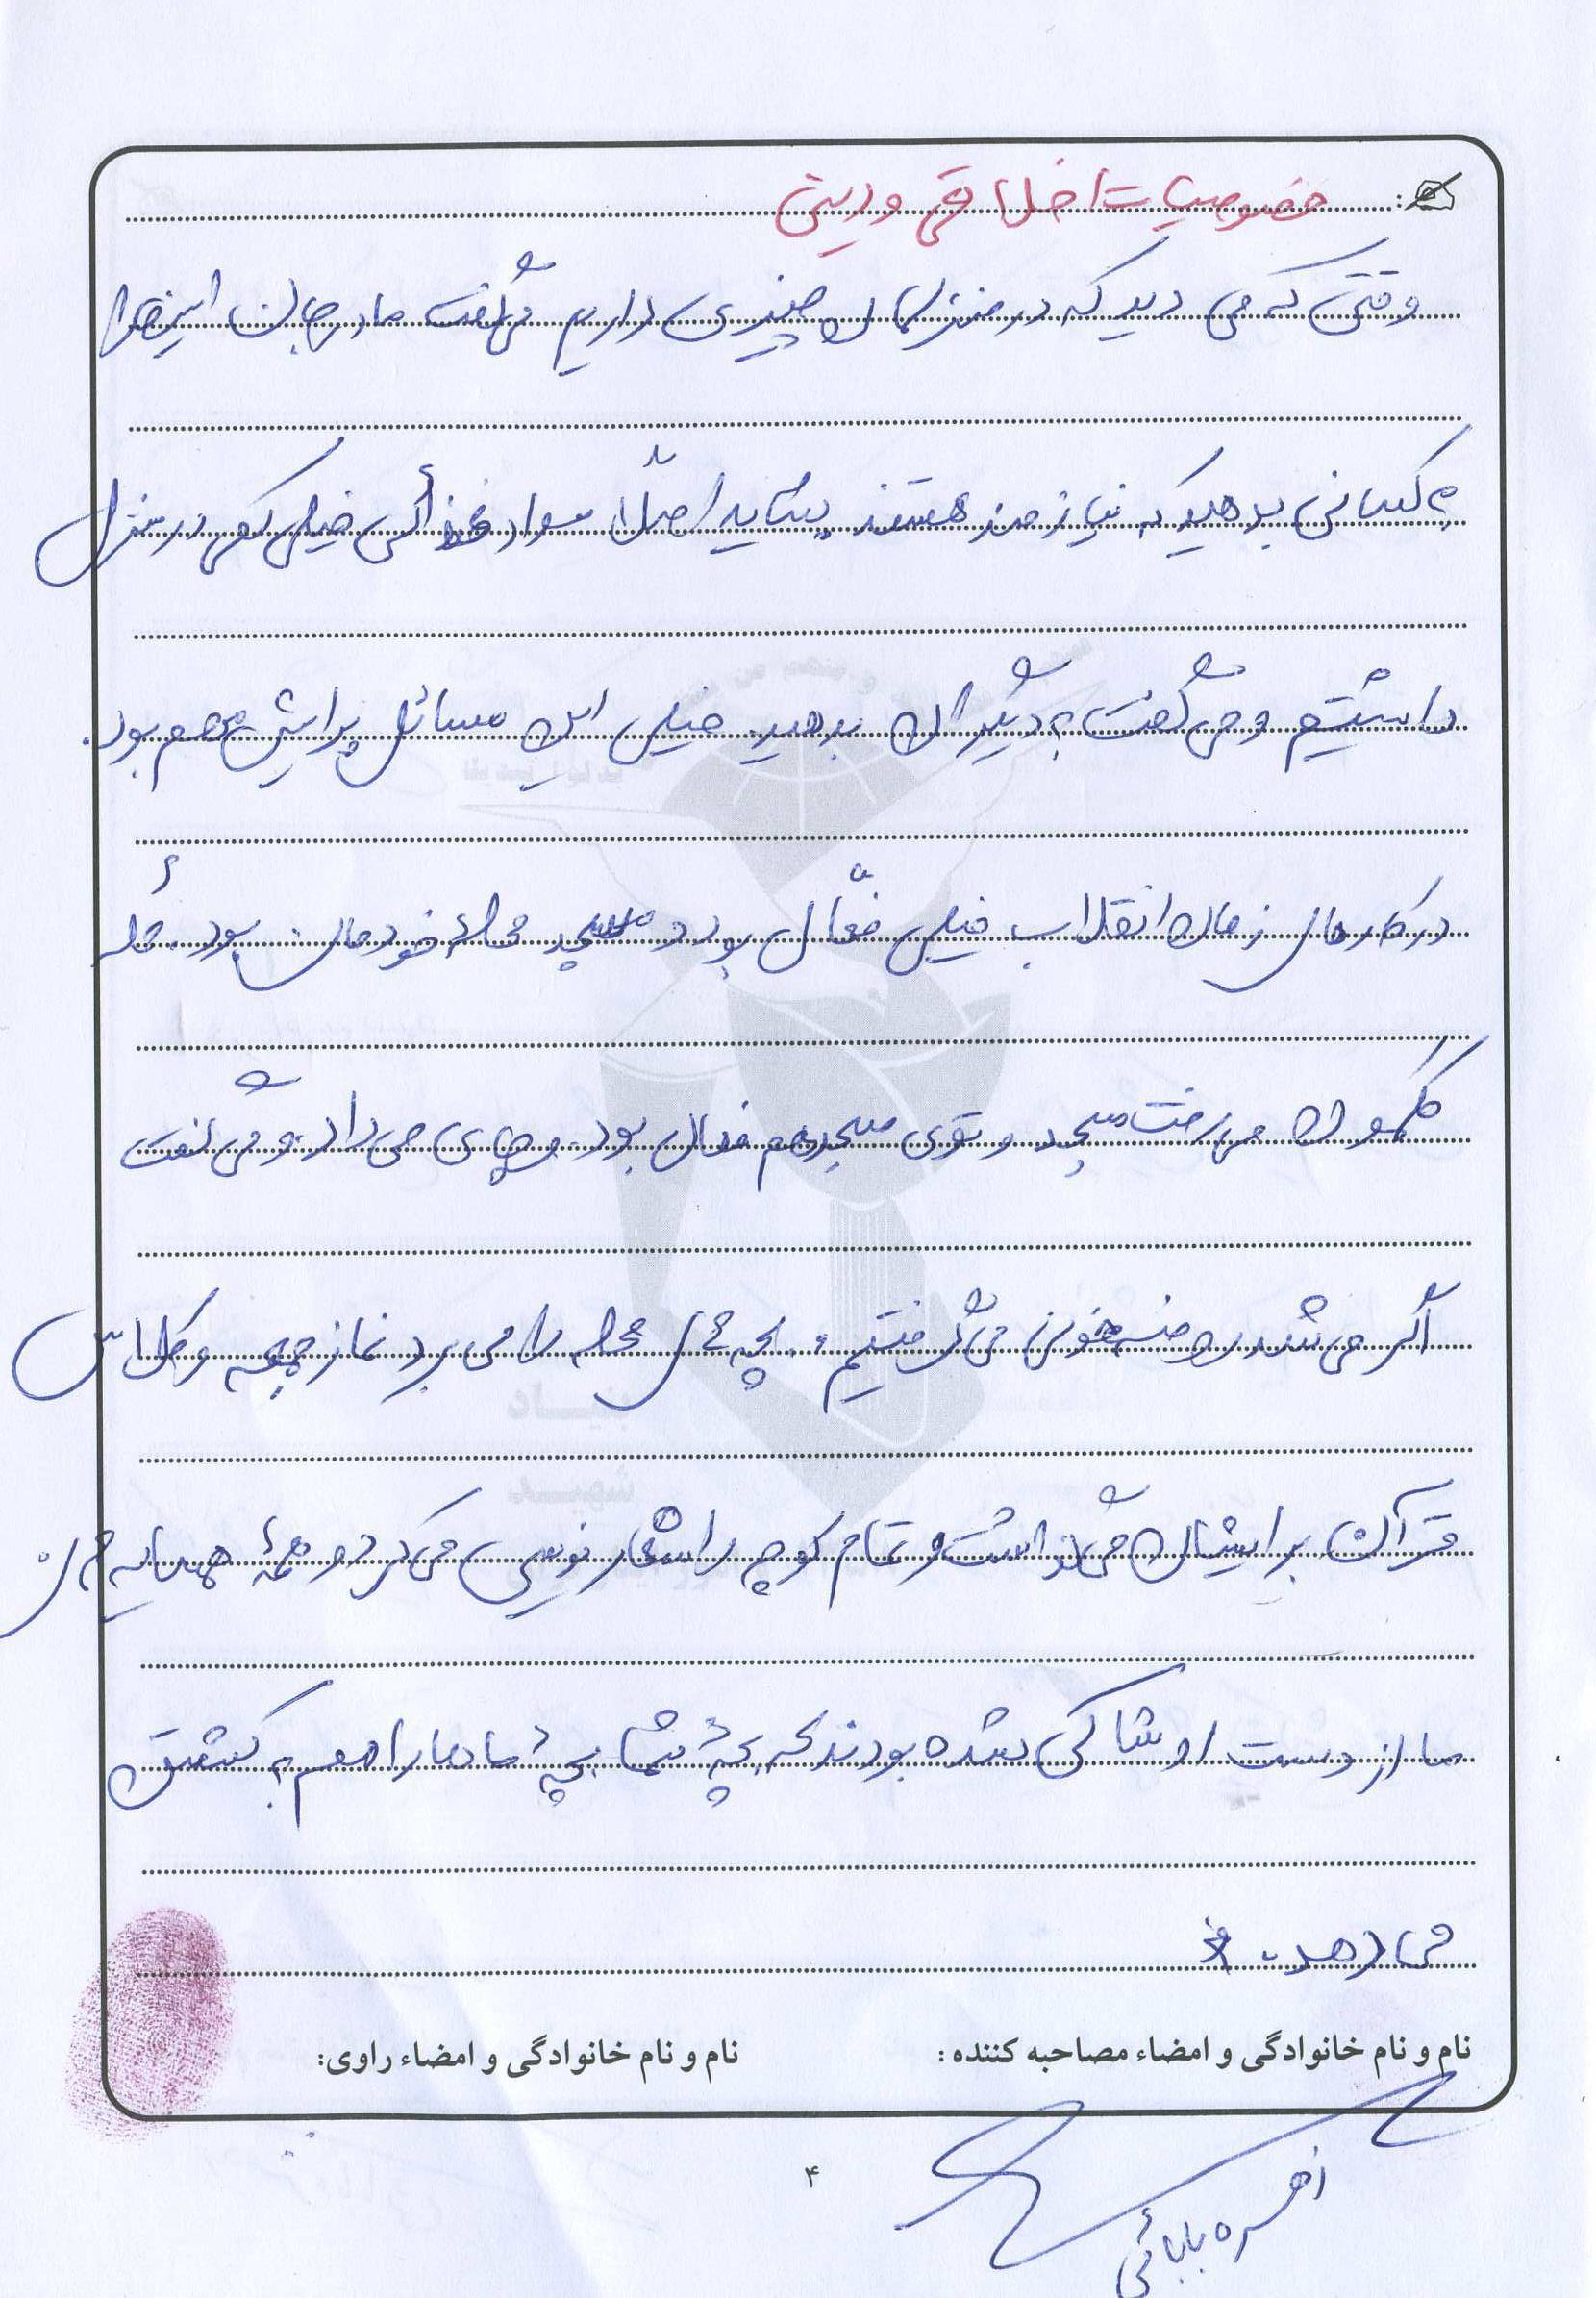 خصوصیات اخلاقی و دینی
وقتی که می دید که در منزلمان چیزی داریم می‌گفت مادرجان اینها را
به کسانی بدهید که نیازمند هستند شاید اصلاً مواد غذائی خیلی کمی در منزل
داشتیم و می گفت به دیگران بدهید. خیلی این مسائل برایش مهم بود.
در کارهای زمان انقلاب خیلی فعّال بود و مسجد محلهٔ خودمان بود. محله
گلموان می رفت مسجد و توی مسجد هم فعال بود. چای می داد. و می گفت
اگر می شد روضه خونی می گرفتیم. بچه های محله را می برد نماز جمعه و کلاس
قرآن برایشان می‌گذاشت و تمام کوچه را شعار نویسی می کرد و همهٔ همسایه های
ما از دست او شاکی شده بودند که بچهٔ شما بچهٔ ماها را هم به کشتن
می دهد.
نام و نام خانوادگی و امضاء مصاحبه کننده:
نام و نام خانوادگی و امضاء راوی:
زهره بابائی
۴